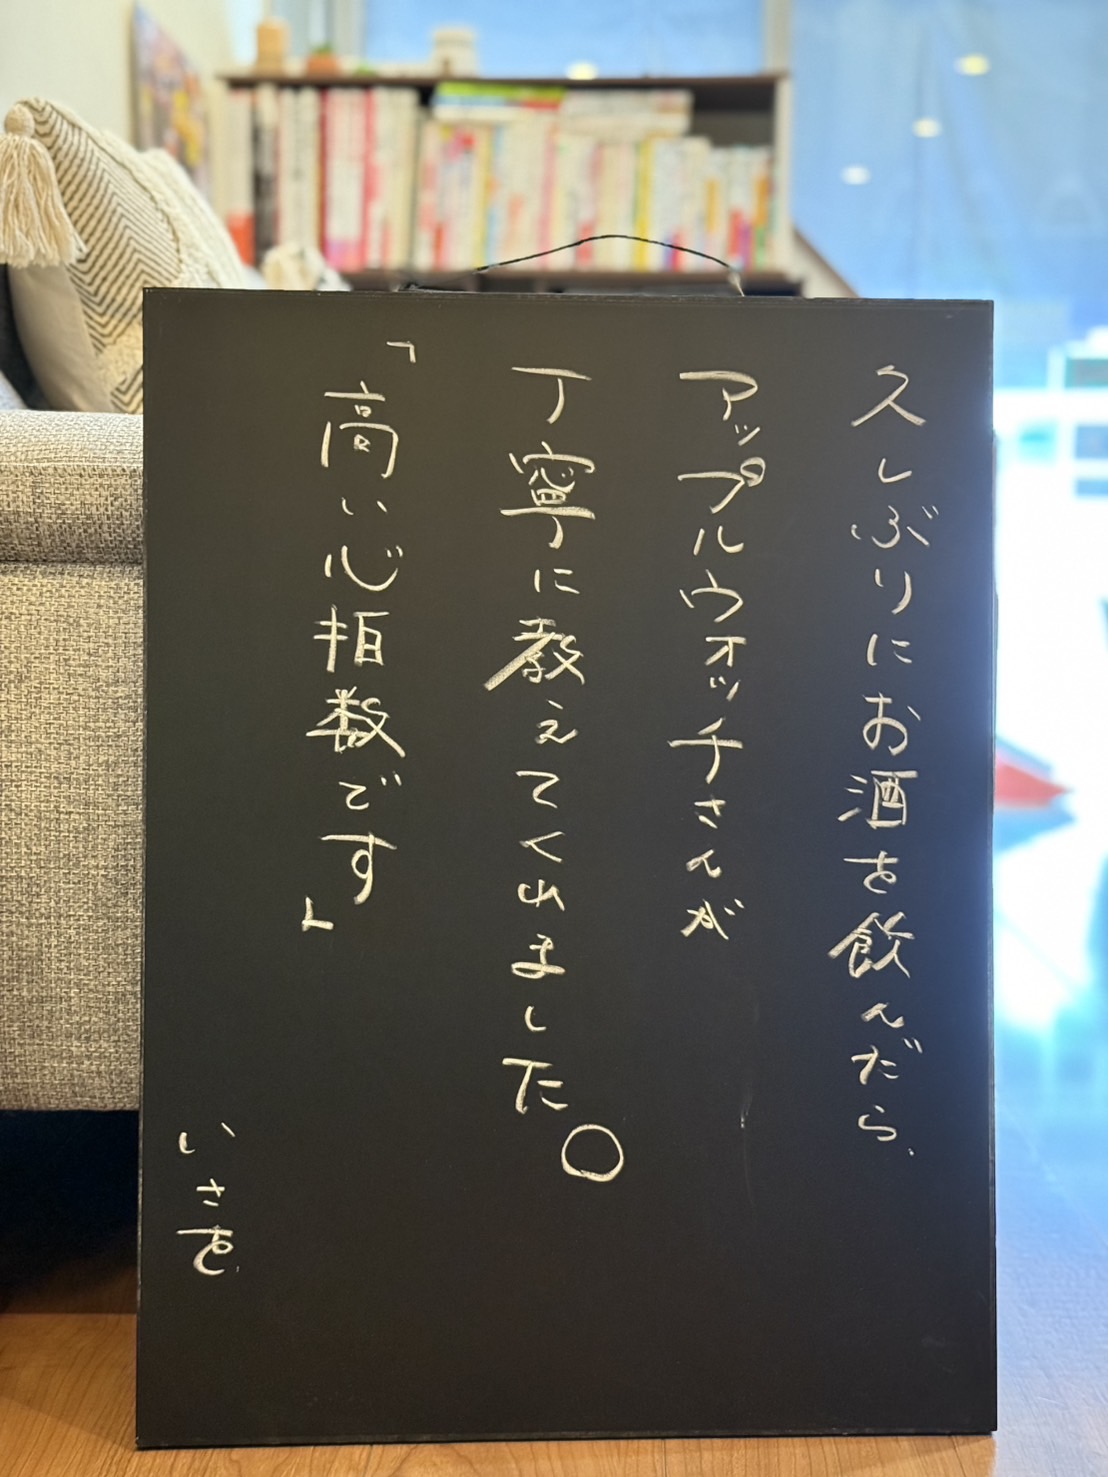 久しぶりにお酒を飲んだら、
アップルウォッチさんが
丁寧に教えてくれました。
「高い心拍数です」
いさを